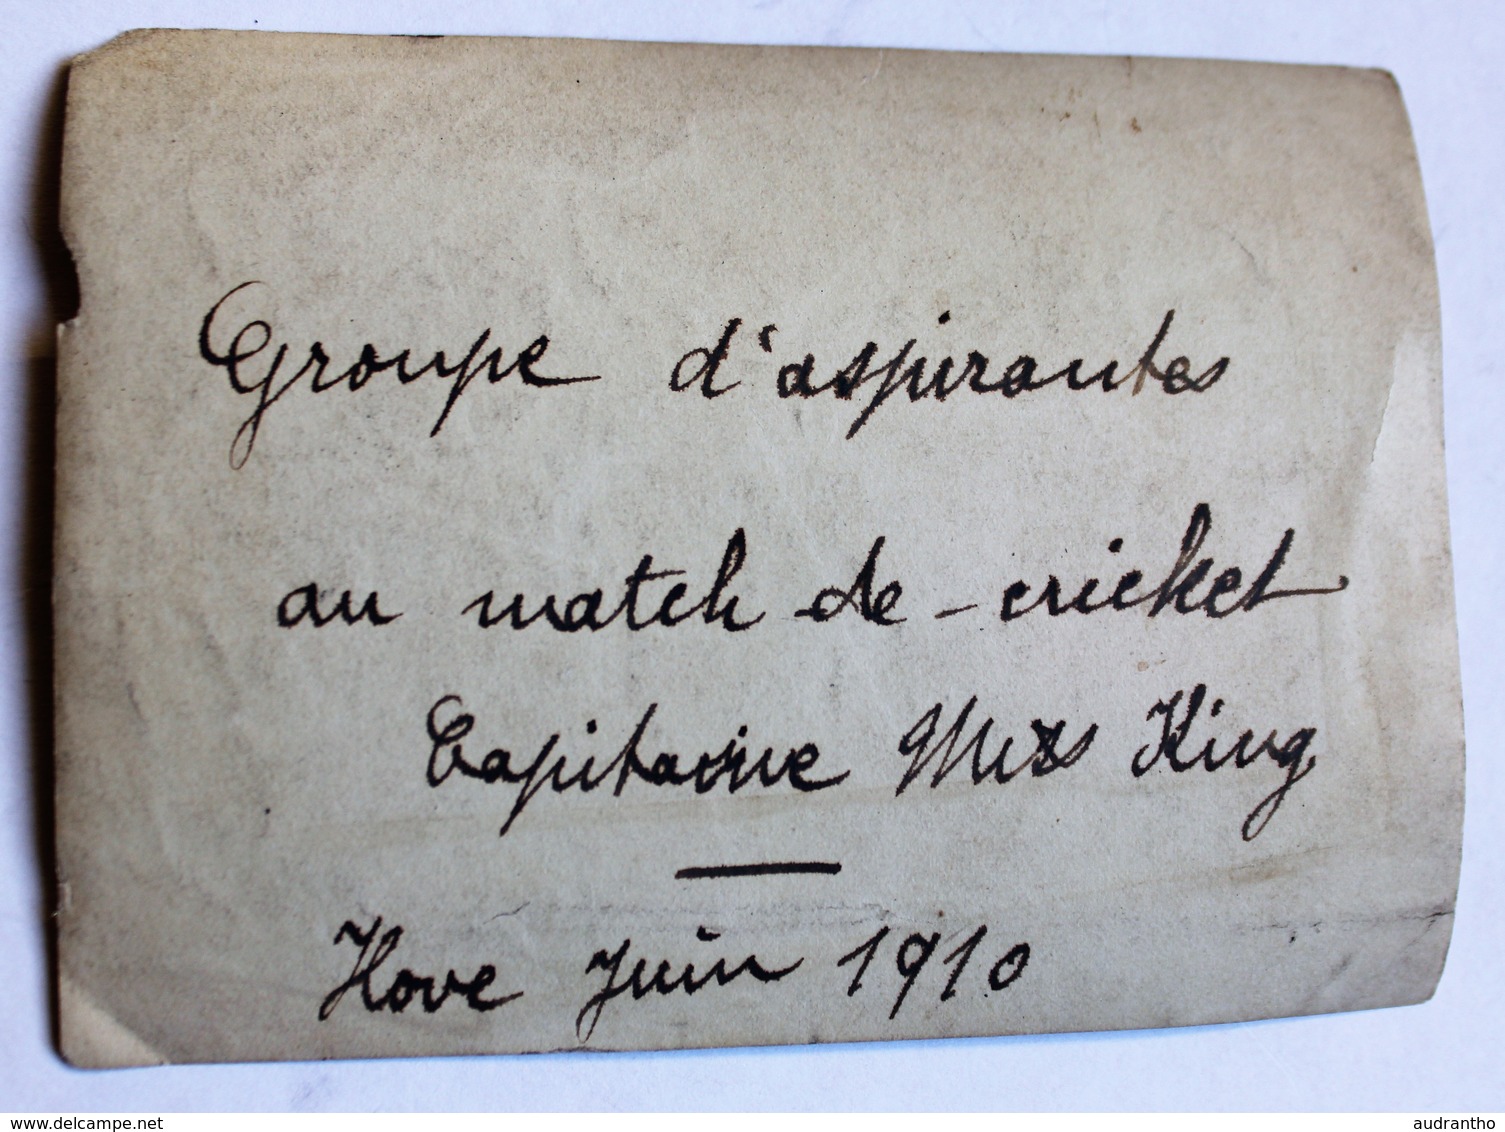 Groupe d'aspirantes
au match de cricket
Capitaine Miss King
Hove Juin 1910
www.delcampe.net
audrantho